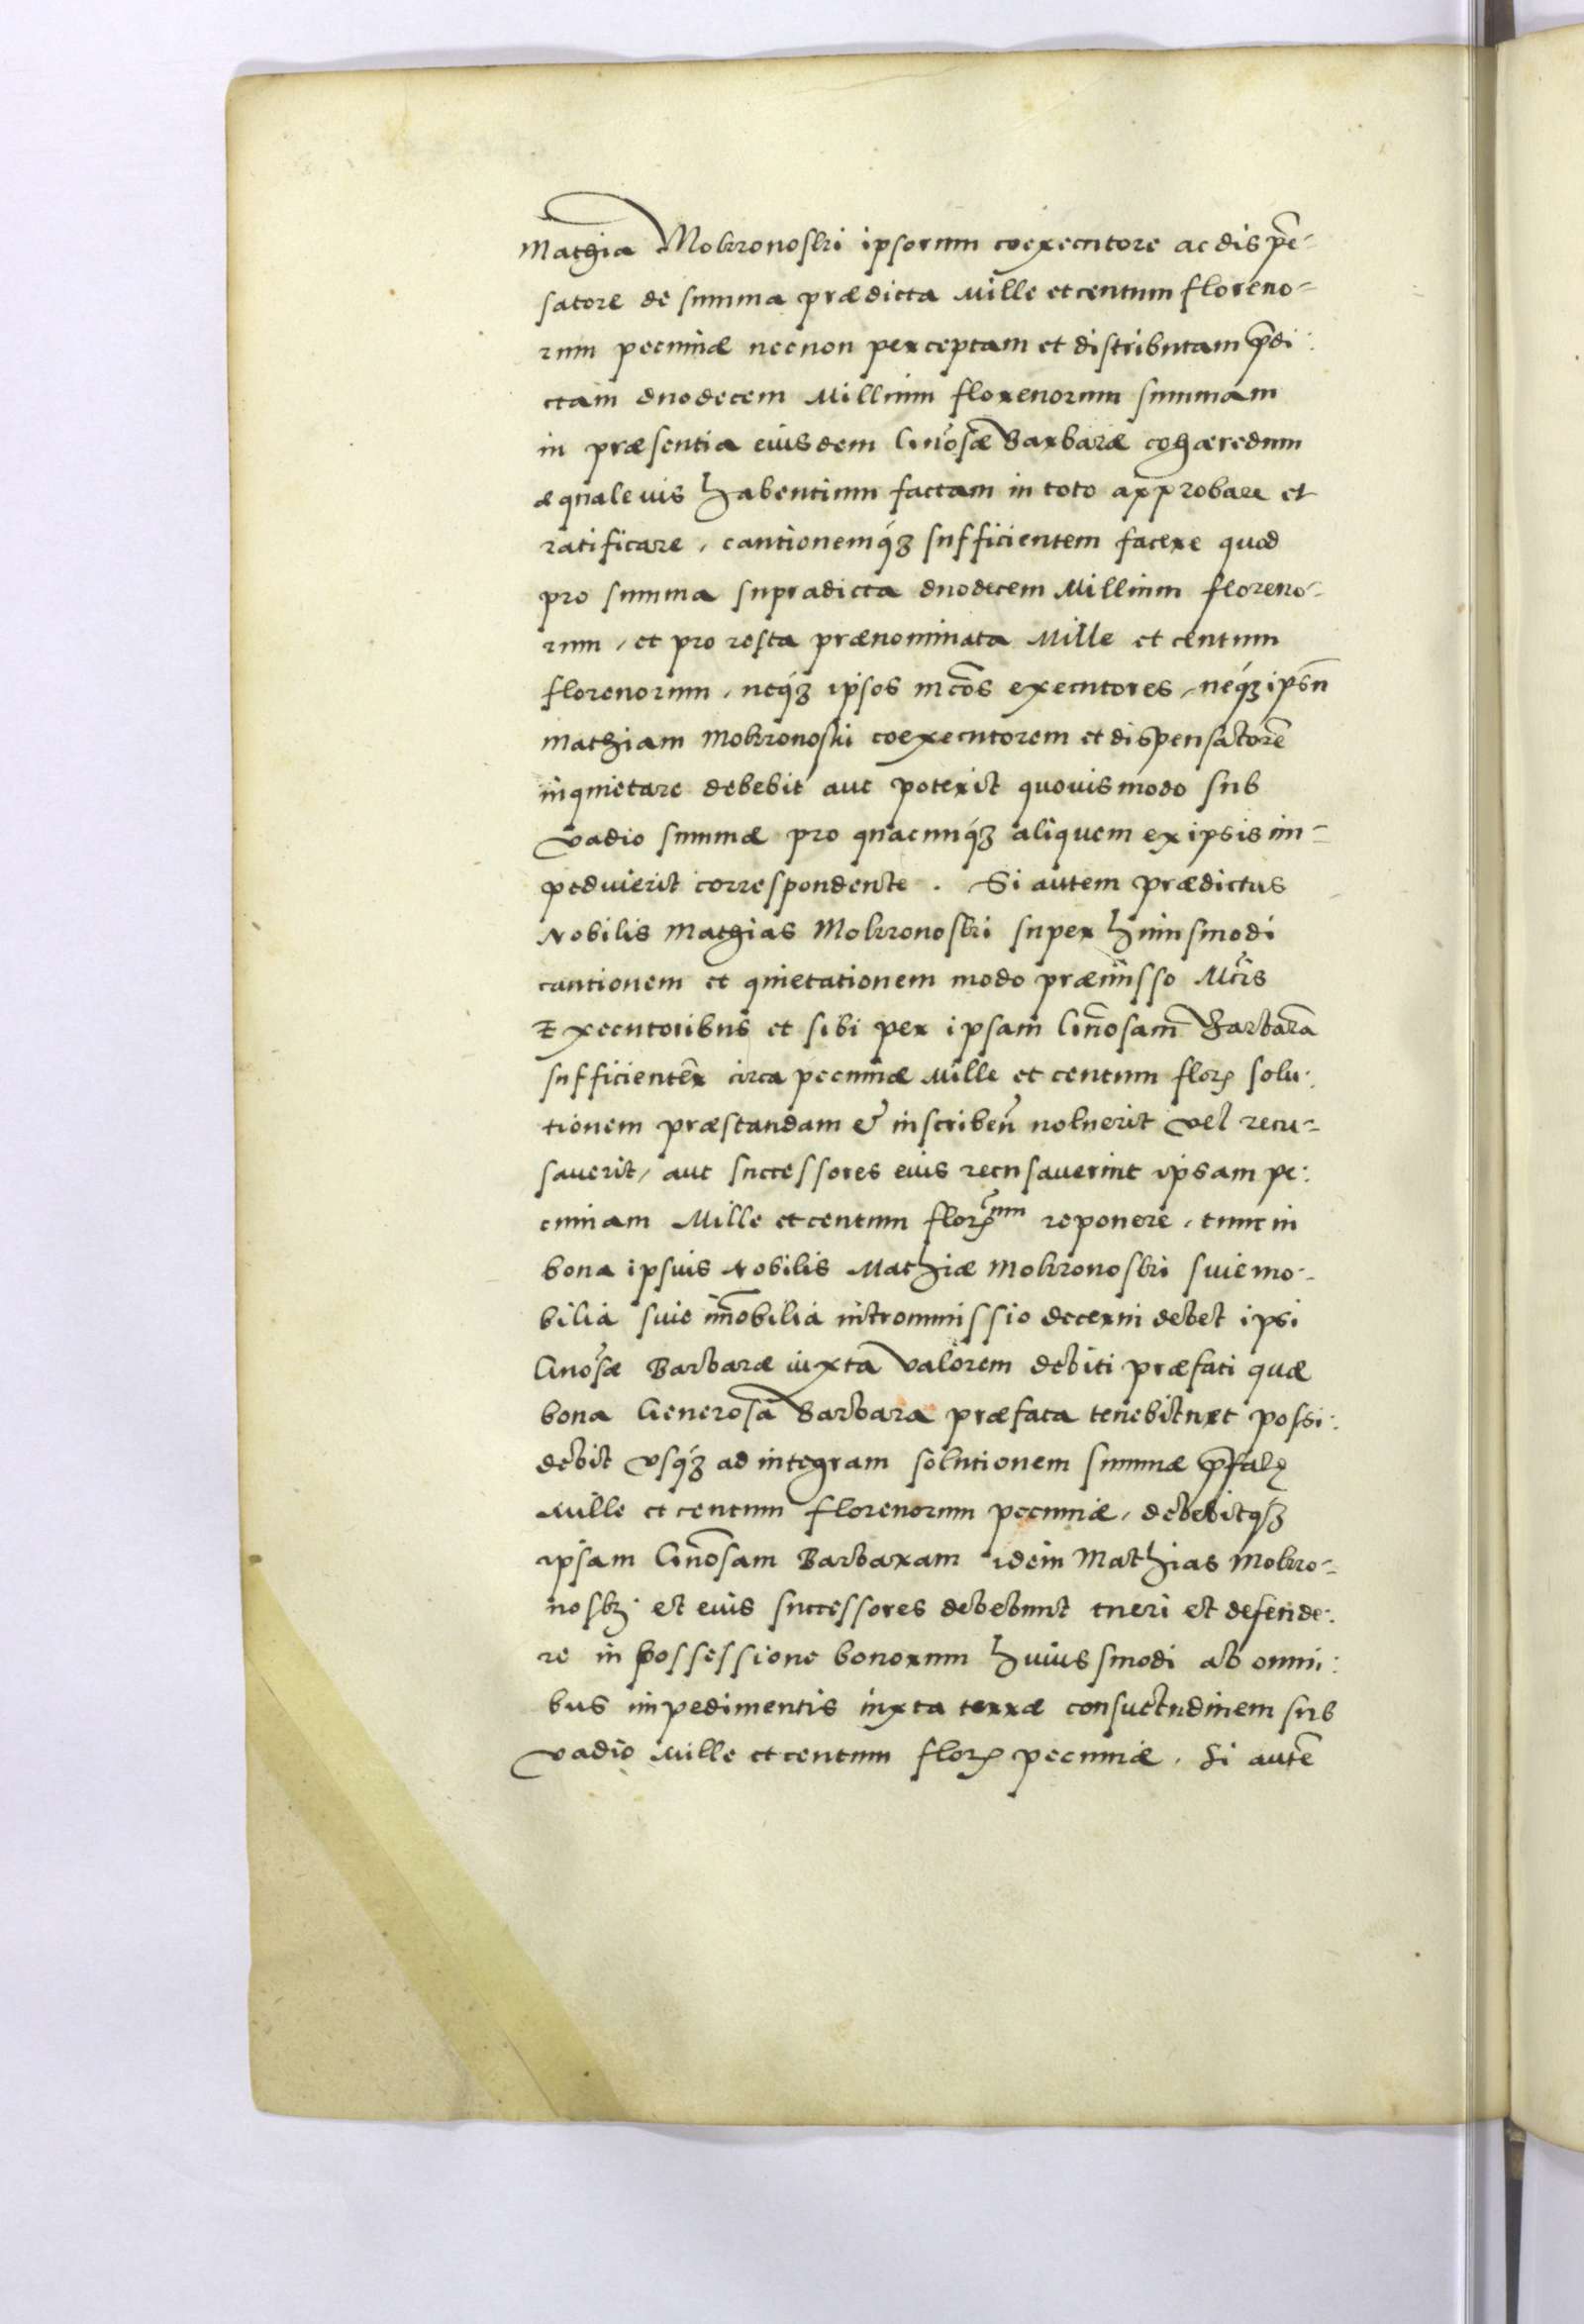 Mathia Mokronoski ipsorum coexecutore ac dispē-
satore de summa prædicta Mille et centum floreno-
rum pecuniæ necnon perceptam et distributam p̄di:
ctam duodecem Millium florenorum summam
in præsentia eiusdem Gnōsæ Barbaræ cohæredum
æquale ius habentium factam in toto approbare et
ratificare, cautionemq́ꝫ sufficientem facere quod
pro summa supradicta duodecem Millium floreno-
rum, et pro resta prænominata Mille et centum
florenorum, neq́ꝫ ipsos mcōs executores, neq́ꝫ ipsn̄
Mathiam Mokronoski coexecutorem et dispensatorē
inquietare debebit aut poterit quouis modo sub
vadio summæ pro quacunq́ꝫ aliquem ex ipsis im-
peduierit correspondente. Si autem prædictus
Nobilis Mathias Mokronoski super huiusmodi
cautionem et quietationem modo præmisso Mcīs
Executoribus et sibi per ipsam Gnōsam Barbarā
sufficientēr circa pecuniæ Mille et centum florꝝ solu:
tionem præstandam & inscribeñ noluerit vel recu-
sauerit, aut successores eius recusauerint ipsam pe:
cuniam Mille et centum florꝝnum reponere, tunc in
bona ipsius Nobilis Mathiæ Mokronoski siue mo-
bilia siue im̄obilia intromissio decerni debet ipsi
Gnōsæ Barbaræ iuxta valorem debiti præfati quæ
bona Generosa Barbara præfata tenebit et possi:
debit vsq́ꝫ ad integram solutionem summæ p̄fatę
Mille et centum florenorum pecuniæ, debebitq́ꝫ
ipsam Gnōsam Barbaram idem Mathias Mokro-
noskj et eius successores debebunt tueri et defende:
re in possessione bonorum huiusmodi ab omni:
bus impedimentis iuxta terræ consuetudinem sub
vadio Mille et centum florꝝ pecuniæ. Si autē